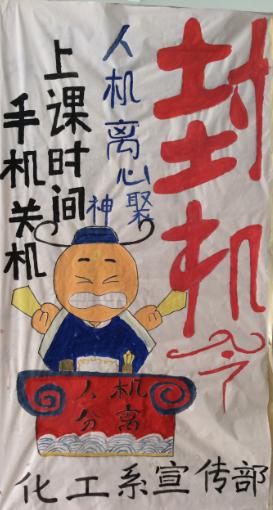 封机令
人机离心神聚
上课时间
手机关机
人机
分离
化工系宣传部